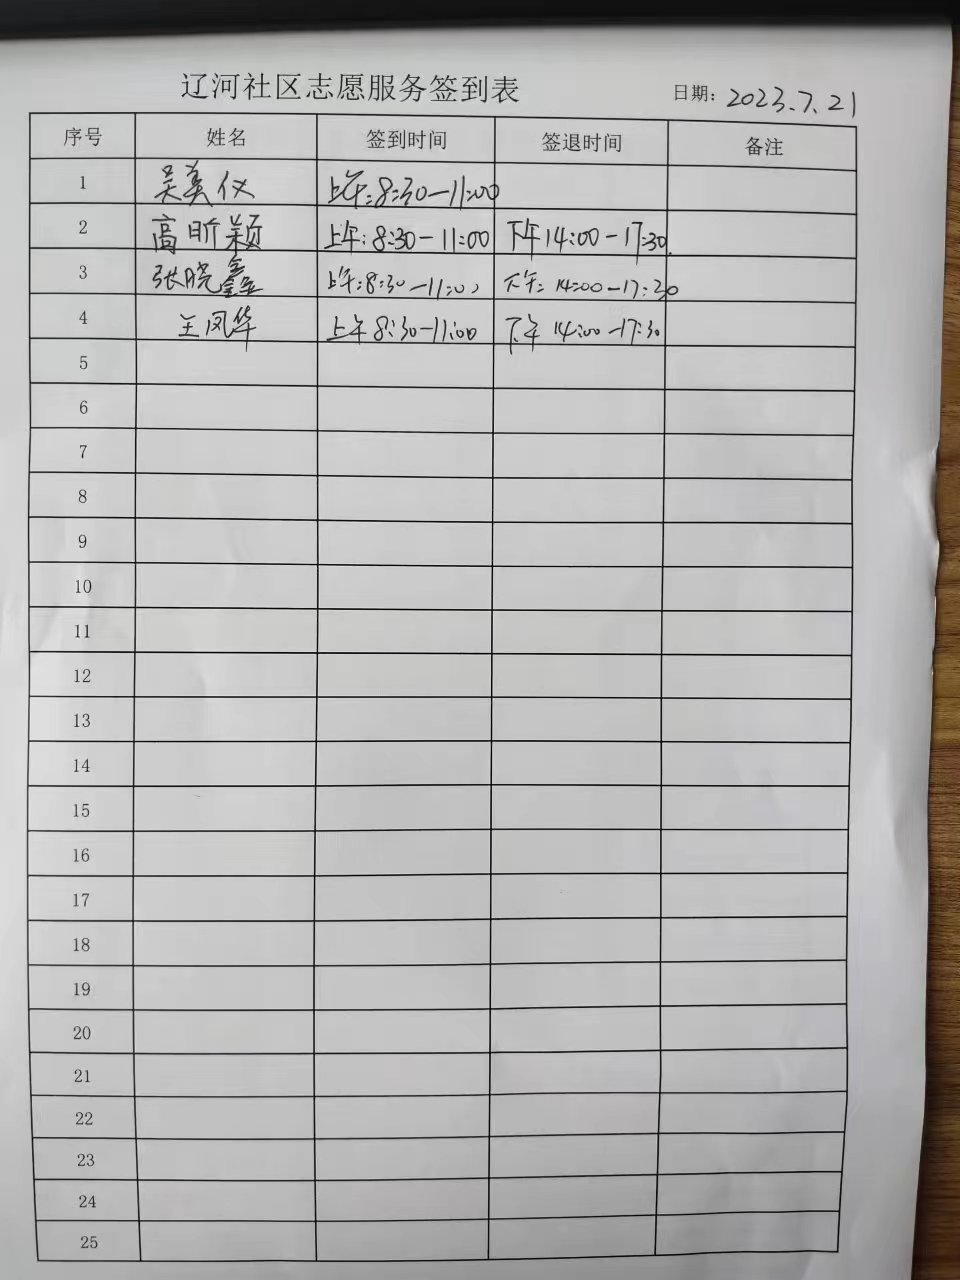 辽河社区志愿服务签到表
日期: 2023.7.21
序号 姓名 签到时间 签退时间 备注
1 吴美仪 上午:8:30-11:00
2 高昕颖 上午:8:30-11:00 下午14:00-17:30
3 张晓鑫 上午:8:30-11:00 下午:14:00-17:30
4 王凤华 上午8:30-11:00 下午14:00-17:30
5
6
7
8
9
10
11
12
13
14
15
16
17
18
19
20
21
22
23
24
25